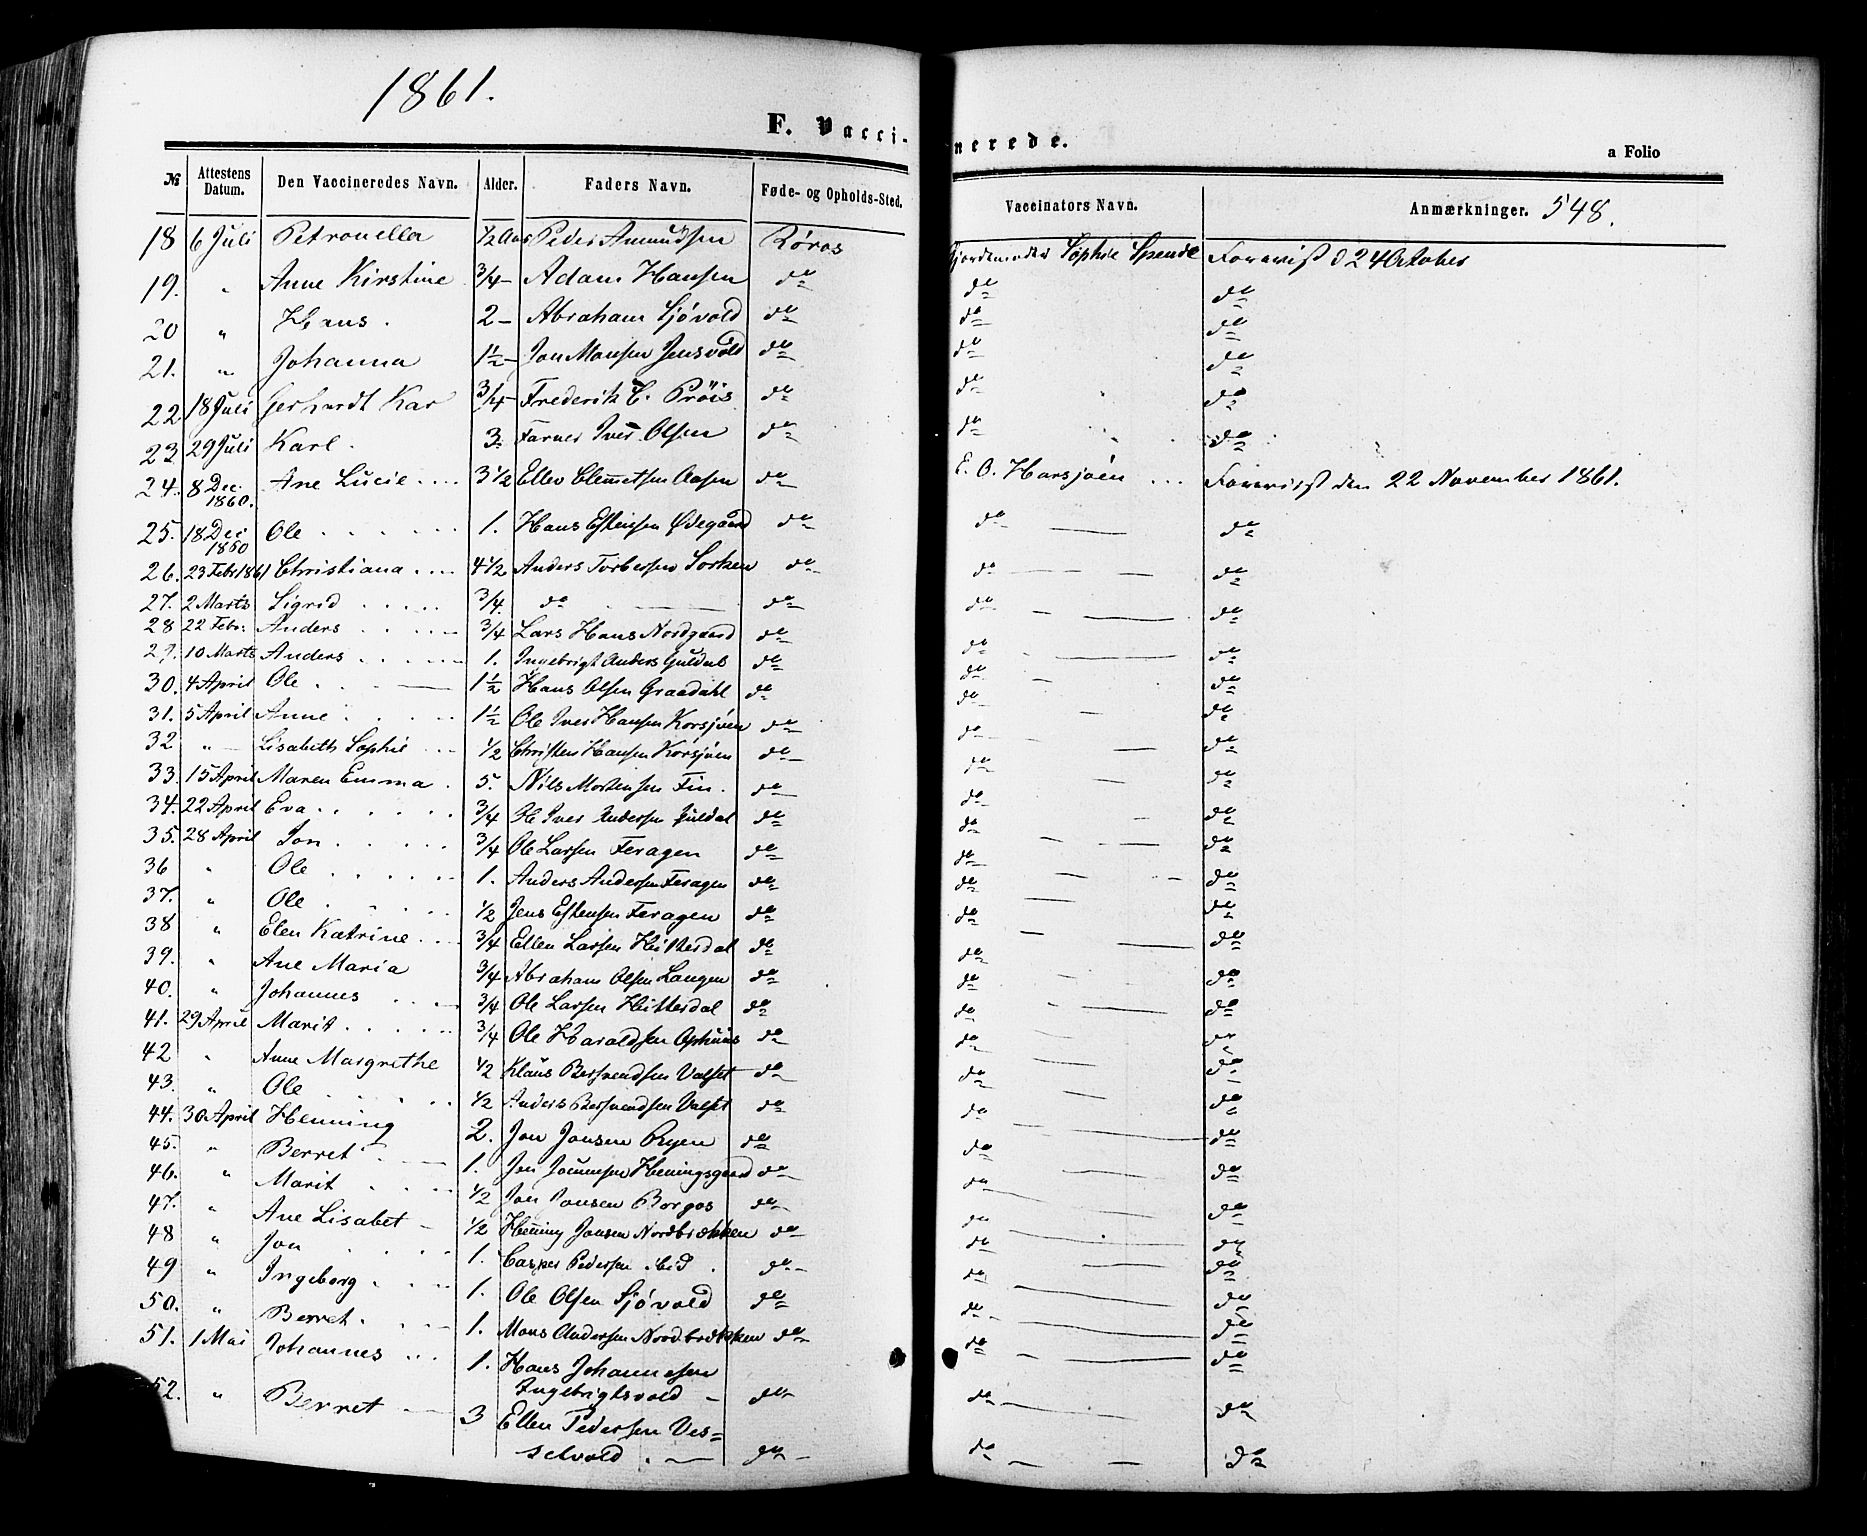 1861.
F. Vaccinerede.
a Folio
№ Attestens Datum. Den Vaccineredes Navn. Alder. Faders Navn. Føde- og Opholds-Sted. Vaccinators Navn. Anmærkninger. 548.
18 6 Juli Petronella 1/2 Aar Peder Amundsen Røros Gjordemoder Sophie Spende Forevist d 24 October
19. " Anne Kirstine 3/4 – Adam Hansen do do do
20 " Hans. 2 – Abraham Sjóvold do do do
21. " Johanna 1½ – Jon Monsen Jensvold do do do
22 18 Juli Gerhardt Kar 3/4 – Frederik C. Próis do do do
23 29 Juli Karl. 3. Farver Iver Olsen do do do
24. 8 Dec. 1860. Ane Lucie 3 1/2 Ellev Clemetsen Aasen do E. O. Harsjóen Forevist den 22 November 1861.
25. 18 Dec 1860 Ole 1. Hans Estensen Ødegaard do do do
26. 23 Febr 1861 Christiana 4 1/2 Anders Torbersen Sorken do do do
27. 2 Marts Sigrid 3/4. do do do do
28 22 Febr. Anders 3/4 Lars Hans Nordgaard do do do
29. 10 Marts Anders 1. Ingebrigt Anders Guldal do do do
30. 4 April Ole 1½ Hans Olsen Graadahl do do do
31. 5 April Anne 1½ Ole Iver Hansen Korsjóen do do do
32 " Lisabeth Sophie 1/2 Christen Hansen Korsjóen do do do
33. 15 April Maren Emma 5. Nils Mortensen Fin. do do do
34. 22 April Eva 3/4 Ole Iver Andersen Guldal do do do
35. 28 April Jon 3/4 Ole Larsen Feragen do do do
36 " Ole 1. Anders Andersen Feragen do do do
37. " Ole 1/2 Jens Estensen Feragen do do do
38 " Elen Katrine 3/4 Ellen Larsen Hitterdal do do do
39. " Ane Maria 3/4 Abraham Olsen Langen do do do
40. " Johannes 3/4 Ole Larsen Hitterdal do do do
41. 29 April Marit 3/4 Ole Haraldsen Ophuus do do do
42 " Anne Margrethe 1/2 Klaus Bersvendsen Valset do do do
43. " Ole 1/2 Anders Bersvendsen Valset do do do
44. 30 April Henning 2. Jon Jonsen Ryen do do do
45. " Berret 1. Jon Henningsgaard do do do
46. " Marit 1/2 Jon Jonsen Borgos do do do
47. " Ane Lisabet 1/2 Hening Jonsen Nordbrækken do do do
48 " Jon 1. Casper Pedersen ibid. do do do
49 " Ingeborg 1. Ole Olsen Sjóvold do do do
50. " Berret 1. Mons Andersen Nordbrækken do do do
51. 1 Mai Johannes 1. Hans Johannesen
Ingebrigtsvold do do do
52. " Berret 3 Ellen Pedersen Ves=
selvold do do do